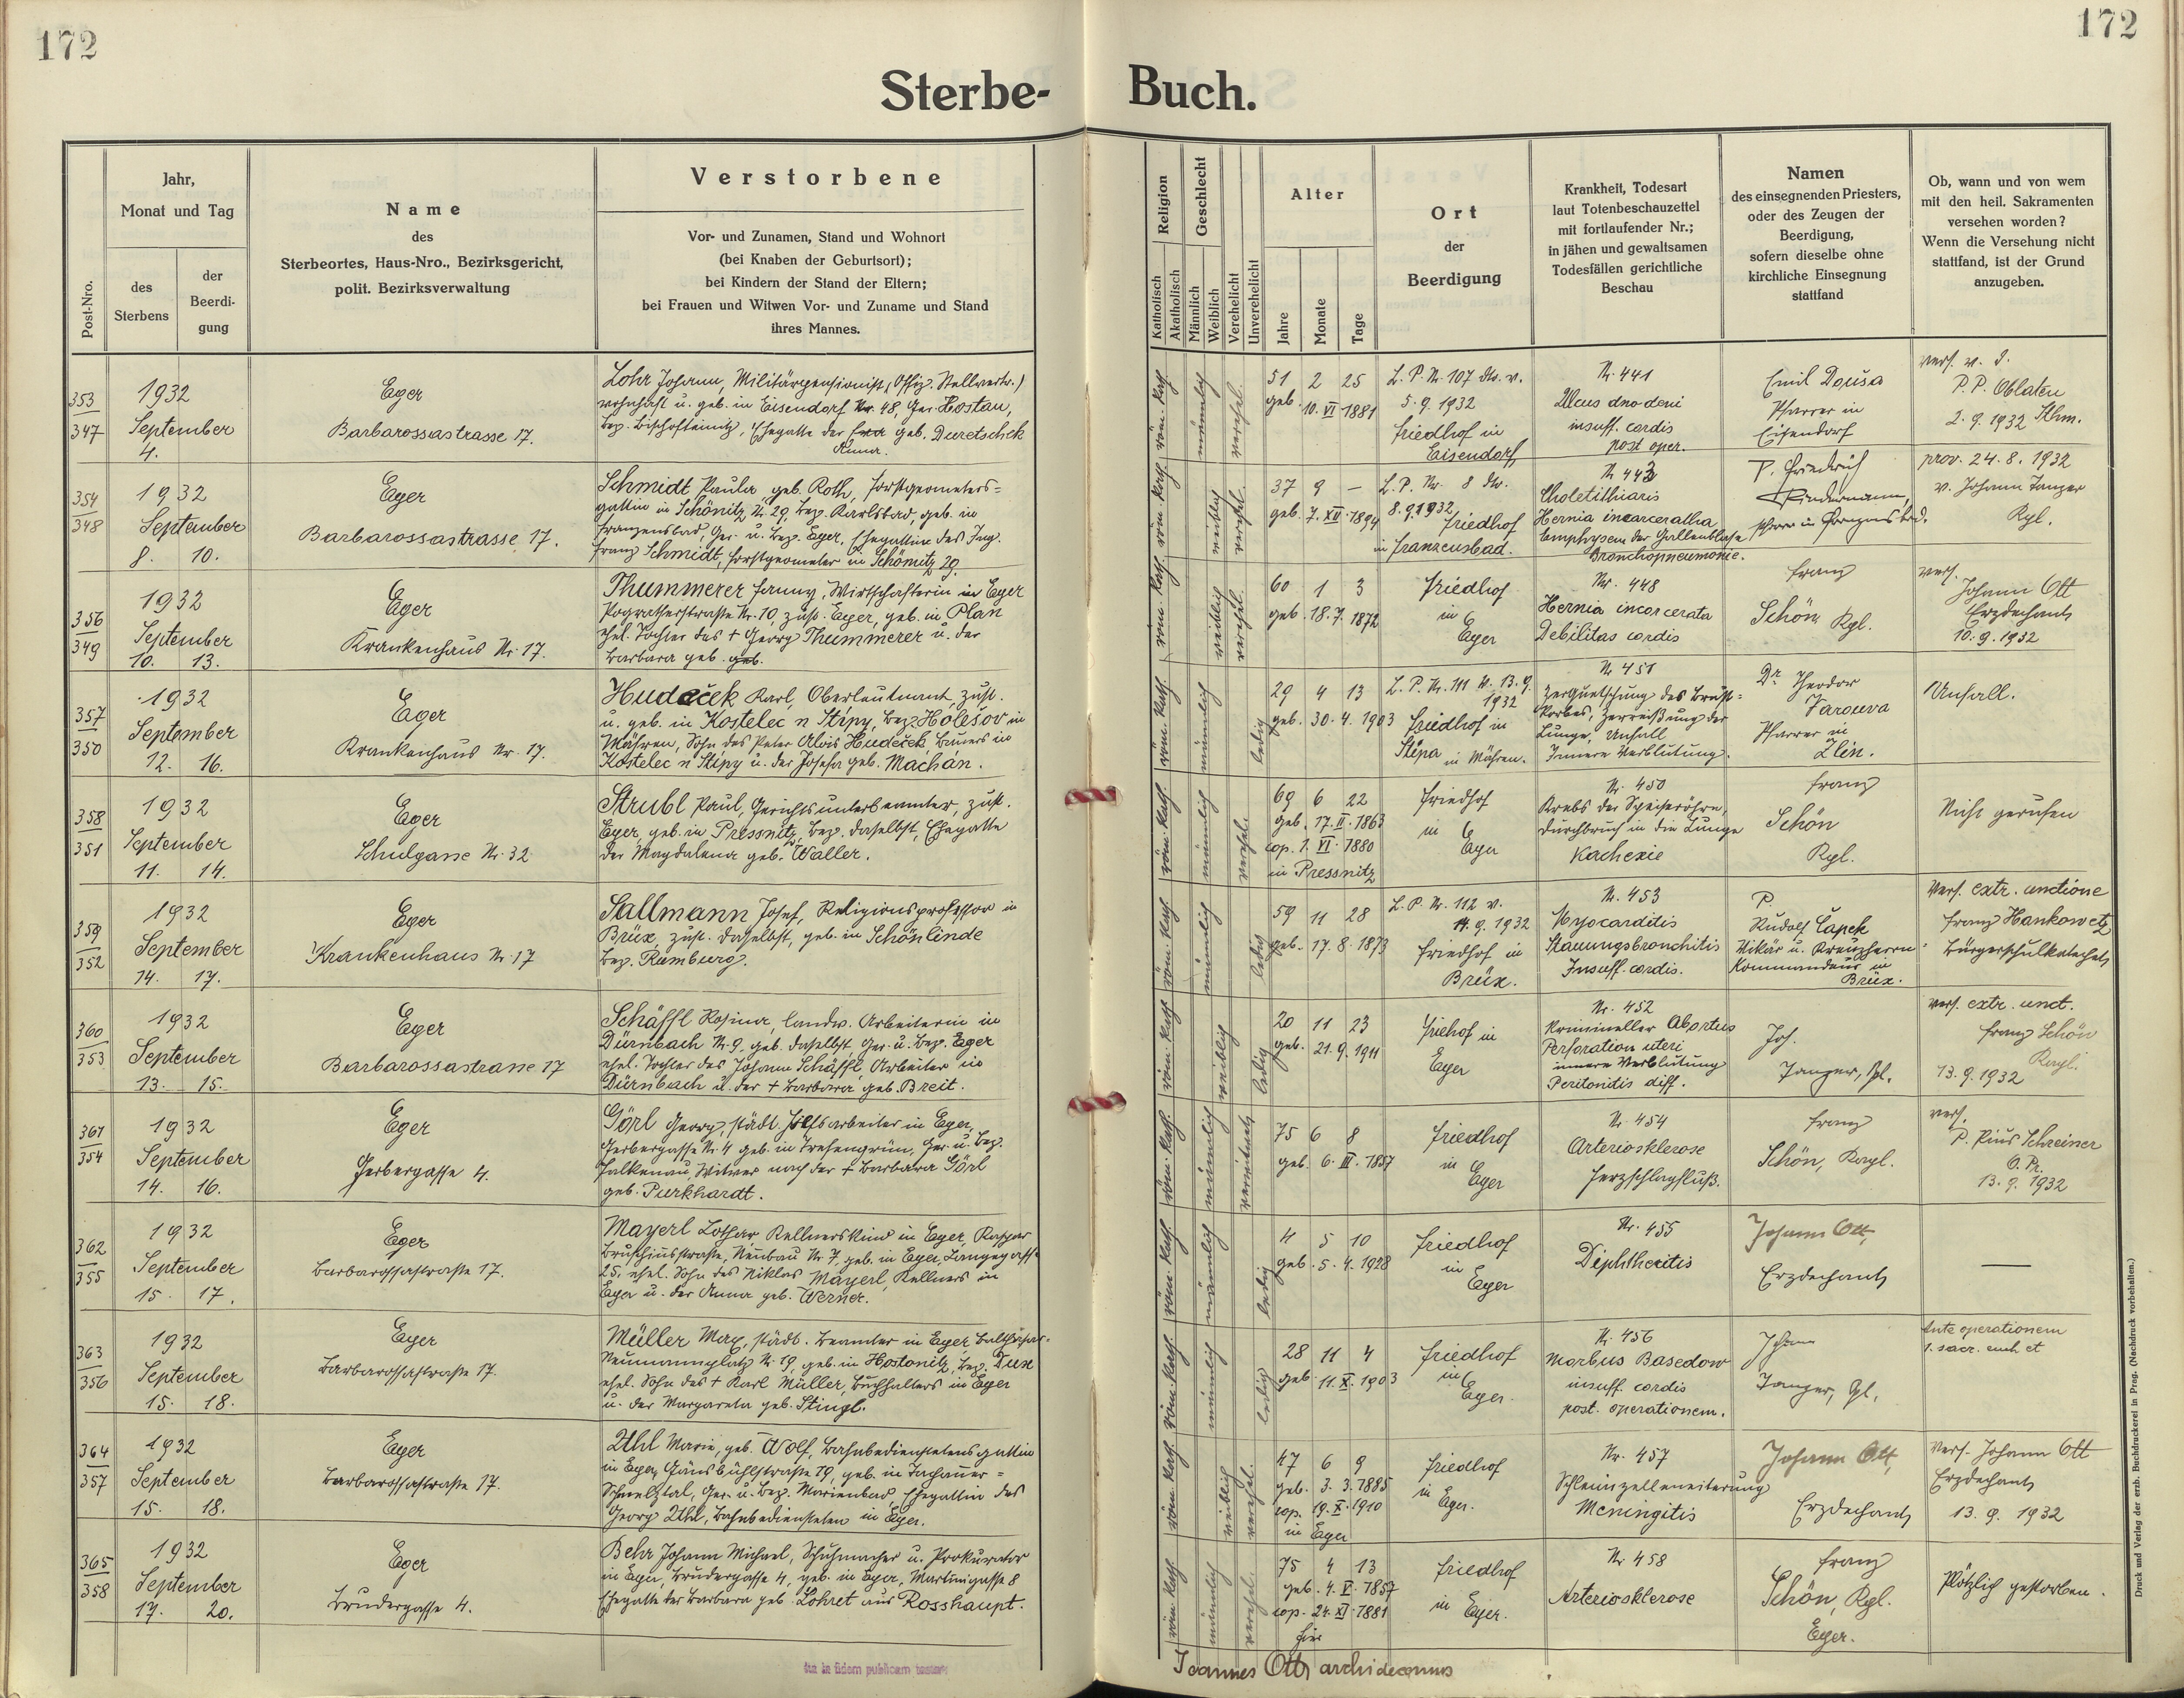 172
172
Sterbe-
Buch.
Post-Nro.
Jahr,
Monat und Tag
des
Sterbens
der
Beerdi-
gung
Name
des
Sterbeortes, Haus-Nro., Bezirksgericht,
polit. Bezirksverwaltung
Verstorbene
Vor- und Zunamen, Stand und Wohnort
(bei Knaben der Geburtsort);
bei Kindern der Stand der Eltern;
bei Frauen und Witwen Vor- und Zuname und Stand
ihres Mannes.
Religion
Katholisch
Akatholisch
Geschlecht
Männlich
Weiblich
Verehelicht
Unverehelicht
Alter
Jahre
Monate
Tage
Ort
der
Beerdigung
Krankheit, Todesart
laut Totenbeschauzettel
mit fortlaufender Nr.;
in jähen und gewaltsamen
Todesfällen gerichtliche
Beschau
Namen
des einsegnenden Priesters,
oder des Zeugen der
Beerdigung,
sofern dieselbe ohne
kirchliche Einsegnung
stattfand
Ob, wann und von wem
mit den heil. Sakramenten
versehen worden?
Wenn die Versehung nicht
stattfand, ist der Grund
anzugeben.
353
347
1932
September
4.
Eger
Barbarossastrasse 17.
Lohr Johann, Militärpensionist, (Offiz. Stellvertr.)
wohnhaft u. geb. in Eisendorf Nr. 48, Ger. Hostau,
Bez. Bischofteinitz, Ehegatte der geb. Duretschek
Anna.
röm. kath.
männlich
verehel.
51 2 25
geb. 10. VI 1881
L. P. Nr. 107 v.
5. 9. 1932
Friedhof in
Eisendorf
Nr. 441
Ulcus duodeni
insuff. cordis
post oper.
Emil Dousa
Pfarrer in
Eisendorf
vers. v. d.
P. P. Oblaten
2. 9. 1932
354
348
1932
September
8. 10.
Eger
Barbarossastrasse 17.
Schmidt Paula, geb. Roth, Forstgeometers=
gattin in Schönitz Nr. 29, Bez. Karlsbad, geb. in
Franzensbad, Ger. u. Bez. Eger, Ehegattin des Ing.
Franz Schmidt, Forstgeometer in Schömitz 29.
röm. kath.
weiblich
verehel.
37 9 –
geb. 7. XII. 1894
L. P. Nr. 8
8. 9. 1932
Friedhof
in Franzensbad.
Nr. 443
Cholelithiaris
Hernia incarceratha
Emphysem der Gallenblase
Bronchopneumonie.
P. Friedrich
Rindermann,
Pfarr in Franzensbad.
prov. 24. 8. 1932
v. Johann Tanzer
Kpl.
356
349
1932
September
10. 13.
Eger
Krankenhaus Nr. 17.
Thummerer Fanny, Wirtschafterin in Eger
Pogratherstraße Nr. 10 zust. Eger, geb. in Plan
ehel. Tochter des † Georg Thummerer u. der
Barbara geb. geb.
röm. kath.
weiblich
verehel.
60 1 3
geb. 18. 7. 1872
Friedhof
in
Eger
Nr. 448
Hernia incorcerata
Debilitas cordis
Franz
Schön Kpl.
vers.
Johann Ott
Erzdechant
10. 9. 1932
357
350
1932
September
12. 16.
Eger
Krankenhaus Nr. 17.
Hudeček Karl, Oberleutnant, zust.
u. geb. in Kostelec n Stípy, Bez. Holešov in
Mähren, Sohn des Peter Alois Hudeček Bauers in
Kostelec n Stípy u. der Josefa geb. Machan.
röm. kath.
männlich
ledig
29 4 13
geb. 30. 4. 1903
L. P. Nr. 111 v. 13. 9.
1932
Friedhof in
Stipa in Mähren.
Nr 451
Zerquetschung des Brust=
korbes, Zerreißung der
Lunge, Unfall
Innere Verblutung.
Dr. Theodor
Varouva
Pfarrer in
Zlin.
Unfall.
358
351
1932
September
11. 14.
Eger
Schulgasse Nr. 32
Strubl Paul, Gerichtsunterbeamter, zust.
Eger, geb. in Pressnitz, Bez. daselbst, Ehegatte
der Magdalena geb. Waller.
röm. kath.
männlich
verehel.
69 6 22
geb. 17. II. 1863
cop. 1. VI. 1880
in Pressnitz
Friedhof
in
Eger
Nr. 450
Krebs der Speiseröhre,
Durchbruch in die Lunge
Kachexie
Franz
Schön
Kpl.
Nicht gerufen
359
352
1932
September
14. 17.
Eger
Krankenhaus Nr. 17
Sallmann Josef, Religionsprofessor in
Brüx, zust. daselbst, geb. in Schönlinde
Bez. Rumburg.
röm. kath.
männlich
ledig
59 11 28
geb. 17. 8. 1873
L. P. Nr. 112 v.
14. 9. 1932
Friedhof in
Brüx.
Nr. 453
Myocarditis
Stauungsbronchitis
Insuff. cordis.
P.
Rudolf Čapek
Vikär u. Kreuzherrn=
Kommandeur in
Brüx.
Vers. extr. unctione
Franz Hankowetz
Bürgerschulkatechet
360
353
1932
September
13. 15.
Eger
Barbarossastrasse 17
Schäffl Rosina, landw. Arbeiterin in
Dürnbach Nr. 9, geb. daselbst Ger. u. Bez. Eger
ehel. Tochter des Johann Schäffl Arbeiter in
Dürnbach u. der † Barbara geb. Breit.
röm. kath.
weiblich
ledig
20 11 23
geb. 21. 9. 1911
Friehof in
Eger
Nr. 452
Krimineller Abortus
Perforation uteri
innere Verblutung
Peritonitis diff.
Joh.
Tanzer, Kpl.
vers. extr. unct.
Franz Schön
Kapl.
13. 9. 1932
361
354
1932
September
14. 16.
Eger
Gerbergasse 4.
Görl Georg, städt. Hilfsarbeiter in Eger,
Gerbergasse Nr. 4 geb. in Ger. u. Bez.
Falkenau, Witwer nach der † Barbara Görl
geb. Purkhardt.
röm. kath.
männlich
verwitwet
75 6 8
geb. 6. III. 1857
Friedhof
in
Eger
Nr. 454
Arteriosklerose
Herzschlagfluß.
Franz
Schön, Kapl.
vers.
P. Pius Schreiner
O. Pr.
13. 9. 1932
362
355
1932
September
15. 17.
Eger
Barbarossastraße 17.
Mayerl Lothar Kellnerskind in Eger, Kaspar
Bruschiusstraße, Neubau Nr. 7, geb. in Eger, Langegasse
25, ehel. Sohn des Niklas Mayerl, Kellners in
Eger u. der Anna geb. Werner.
röm. kath.
männlich
ledig
4 5 10
geb. 5. 4. 1928
Friedhof
in
Eger
Nr. 455
Diphtheritis
Johann Ott,
Erzdechant
—
363
356
1932
September
15. 18.
Eger
Barbarossastraße 17.
Müller Max, städt. Beamter in Eger Balthasar-
Neumannplatz Nr. 19, geb. in Hostonitz, Bez. Dux
ehel. Sohn des † Karl Müller, Buchhalters in Eger
u. der Margareta geb. Stingl.
röm. kath.
männlich
ledig
28 11 4
geb. 11. X. 1903
Friedhof
in
Eger.
Nr. 456
Morbus Basedow
insuff. cordis
post. operationem.
Johann
Tanzer, Kpl.
Ante operationem
1. sacr. euch et
364
357
1932
September
15. 18.
Eger
Barbarossastraße 17.
Uhl Marie, geb. Wolf, Bahnbedienstetensgattin
in Eger, Gänsbühlstraße 19, geb. in Tachauer=
Schmelztal, Ger. u. Bez. Marienbad, Ehegattin des
Georg Uhl, Bahnbediensteten in Eger.
röm. kath.
weiblich
verehel.
47 6 9
geb. 3. 3. 1885
cop. 19. X. 1910
in Eger
Friedhof
in Eger.
Nr. 457
Schleimzelleneiterung
Meningitis
Johann Ott,
Erzdechant
Vers. Johann Ott
Erzdechant
13. 9. 1932
365
358
1932
September
17. 20.
Eger
Brudergasse 4.
Behr Johann Michael, Schuhmacher u. Prokurator
in Eger, Brudergasse 4, geb. in Eger, Martinigasse 8
Ehegatte der Barbara geb. Lohret aus Rosshaupt.
röm. kath.
männlich
verehel.
75 4 13
geb. 4. V. 1857
cop. 24. XI. 1881
hier
Friedhof
in Eger.
Nr. 458
Arteriosklerose
Franz
Schön, Kpl.
Eger.
Plötzlich gestorben.
Ita in fidem publicam testor:
Joannes Ott archidecanus
Druck und Verlag der erzb. Buchdruckerei in Prag. (Nachdruck vorbehalten.)